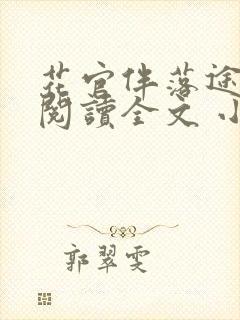 花官伴落途
閱讀全文 小
郭翠雯